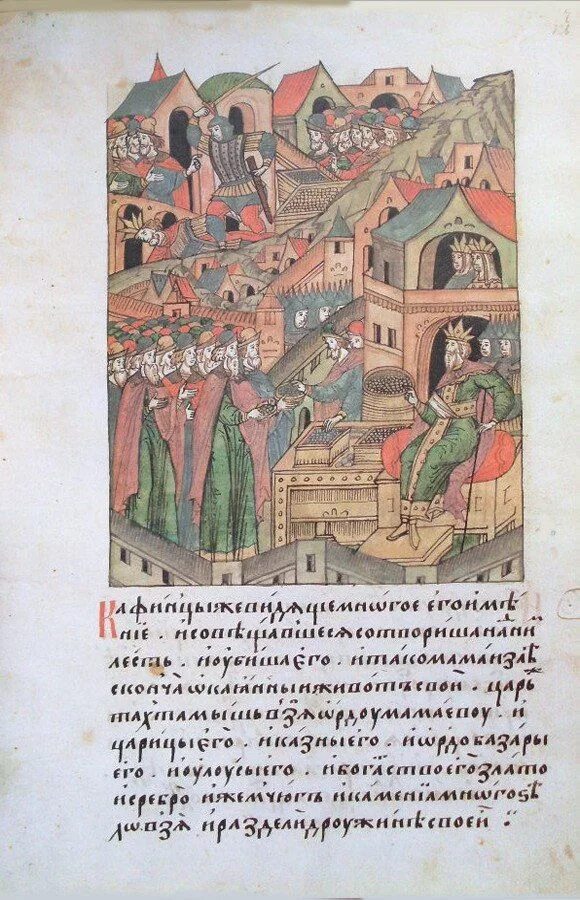 Кафинцы же видѧще мнѡгое его имѣ
нїе . и совѣщавшесѧ сотвориша на ни
лесть . и оубиша єго . и тако мамаи злѣ
скончѧ ѡкаѧнныи животъ свои . царь
тахтамышь взѧ ѡрдоу мамаевоу . и
царицы єго . и казны его . и ѡрдобазары
его . и оулоусы его . и богатство его злато
и сребро и жемчюгъ и каменїѧ мнѡго ѕѣ
лѡ взѧ и раздели дроужинѣ своеи